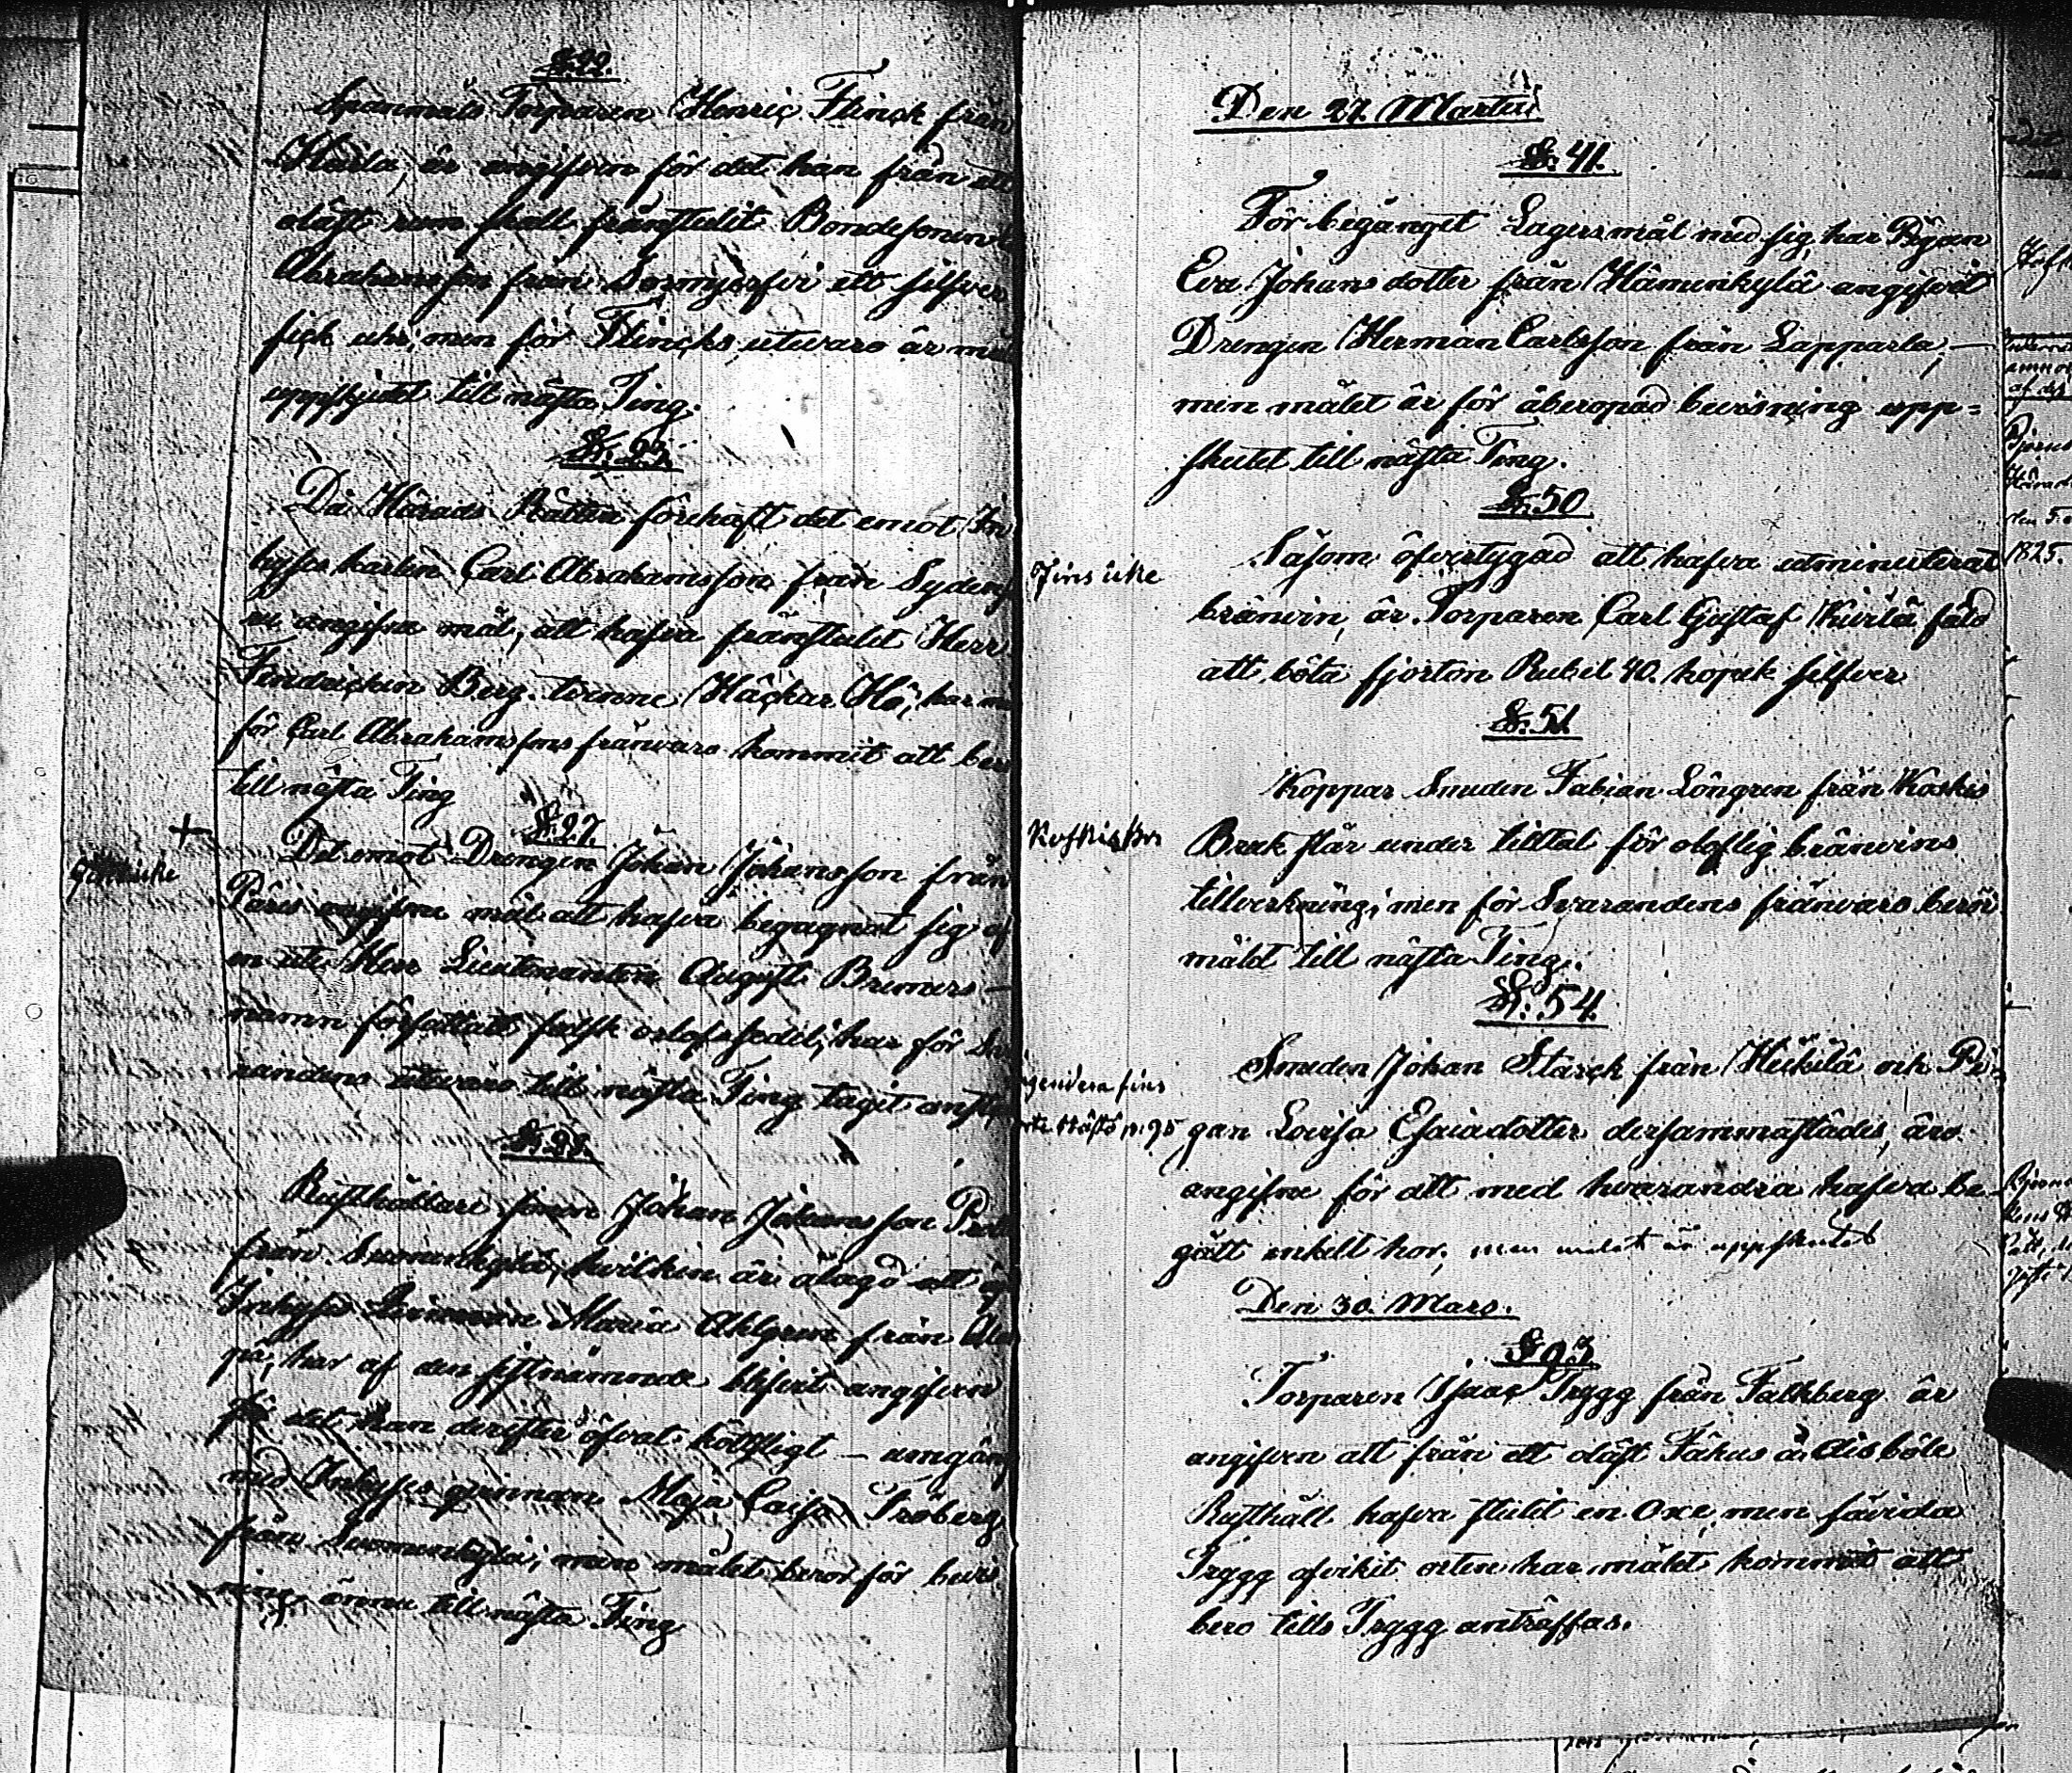 §. 22.
Torparen Henric Flinck från
Harla, är angifven för det han från ett
olåst rum skall frånstulit Bondesonen
Abrahamsson från ett silfver
fick uhr; men för Flincks utevaro är må
uppskjutet till nästa Ting.
§. 23.
Då Härads Rätten förehaft det emot In
hyses karlen Carl Abrahamsson från
angifna mål, att hafva frånstulit Herr
Fendricken Berg tvenne Häckar Hö, har må
för Carl Abrahamssons frånvaro kommit att bero
till nästa Ting
§. 27.
Det emot Drengen Johan Johansson från
Påris angifne mål att hafva begagnat sig af
en uti Herr Lieutenanten August Bremers
namn författad falsk orlofssedel; har för Sva
randens utevaro till nästa Ting tagit anst
§. 29.
Rusthållare sonen Johan Johansson
från Suomenkylä, hvilken är ålagd att
Inhyses Maria Ahlgren från
på, har af den sistnämnde blifvit angifven
för det han derefter öfvat köttsligt – umgäng
med Inhyses qvinnan Maja Caisa Fröberg
från Suomenkylä; men målet beror för bevis
ning ännu till nästa Ting
Den 27. Martii
§. 41.
För begånget Lägersmål med sig, har Pigan
Eva Johansdotter från Hämenkylä angifvit
Drengen Herman Carlsson från Lapparla; –
men målet är för åberopad bevisning upp=
skutet till nästa Ting.
§. 50
Fins icke
Såsom öfvertygad att hafva utminuterat
bränvin, är Torparen Carl Gustaf Kurlä fäld
att böta fjorton Rubel 40. kopek silfver
§. 51.
Koppar Smeden Fabian Löngren från Koskis
Bruk står under tilltal för oloflig bränvins
tillverkning; men för Svarandens frånvaro berör
mäld till nästa Ting.
§. 54.
Smeden Johan Starck från Heikilä och Pi=
gan Lovisa Esaiadotter dersammastädes, äro
angifne för att med hvarandra hafva be-
gått enkelt hor; men målet är uppskutet
Den 30. Mars.
§ 93
Torparen Isaac Trygg från Falkberg är
angifven att från ett olåst Fähus å Disböle
Rusthåll hafva stulit en Oxe, men såvida
Trygg afvikit orten har målet kommit att
bero tills Trygg anträffas.
1825.